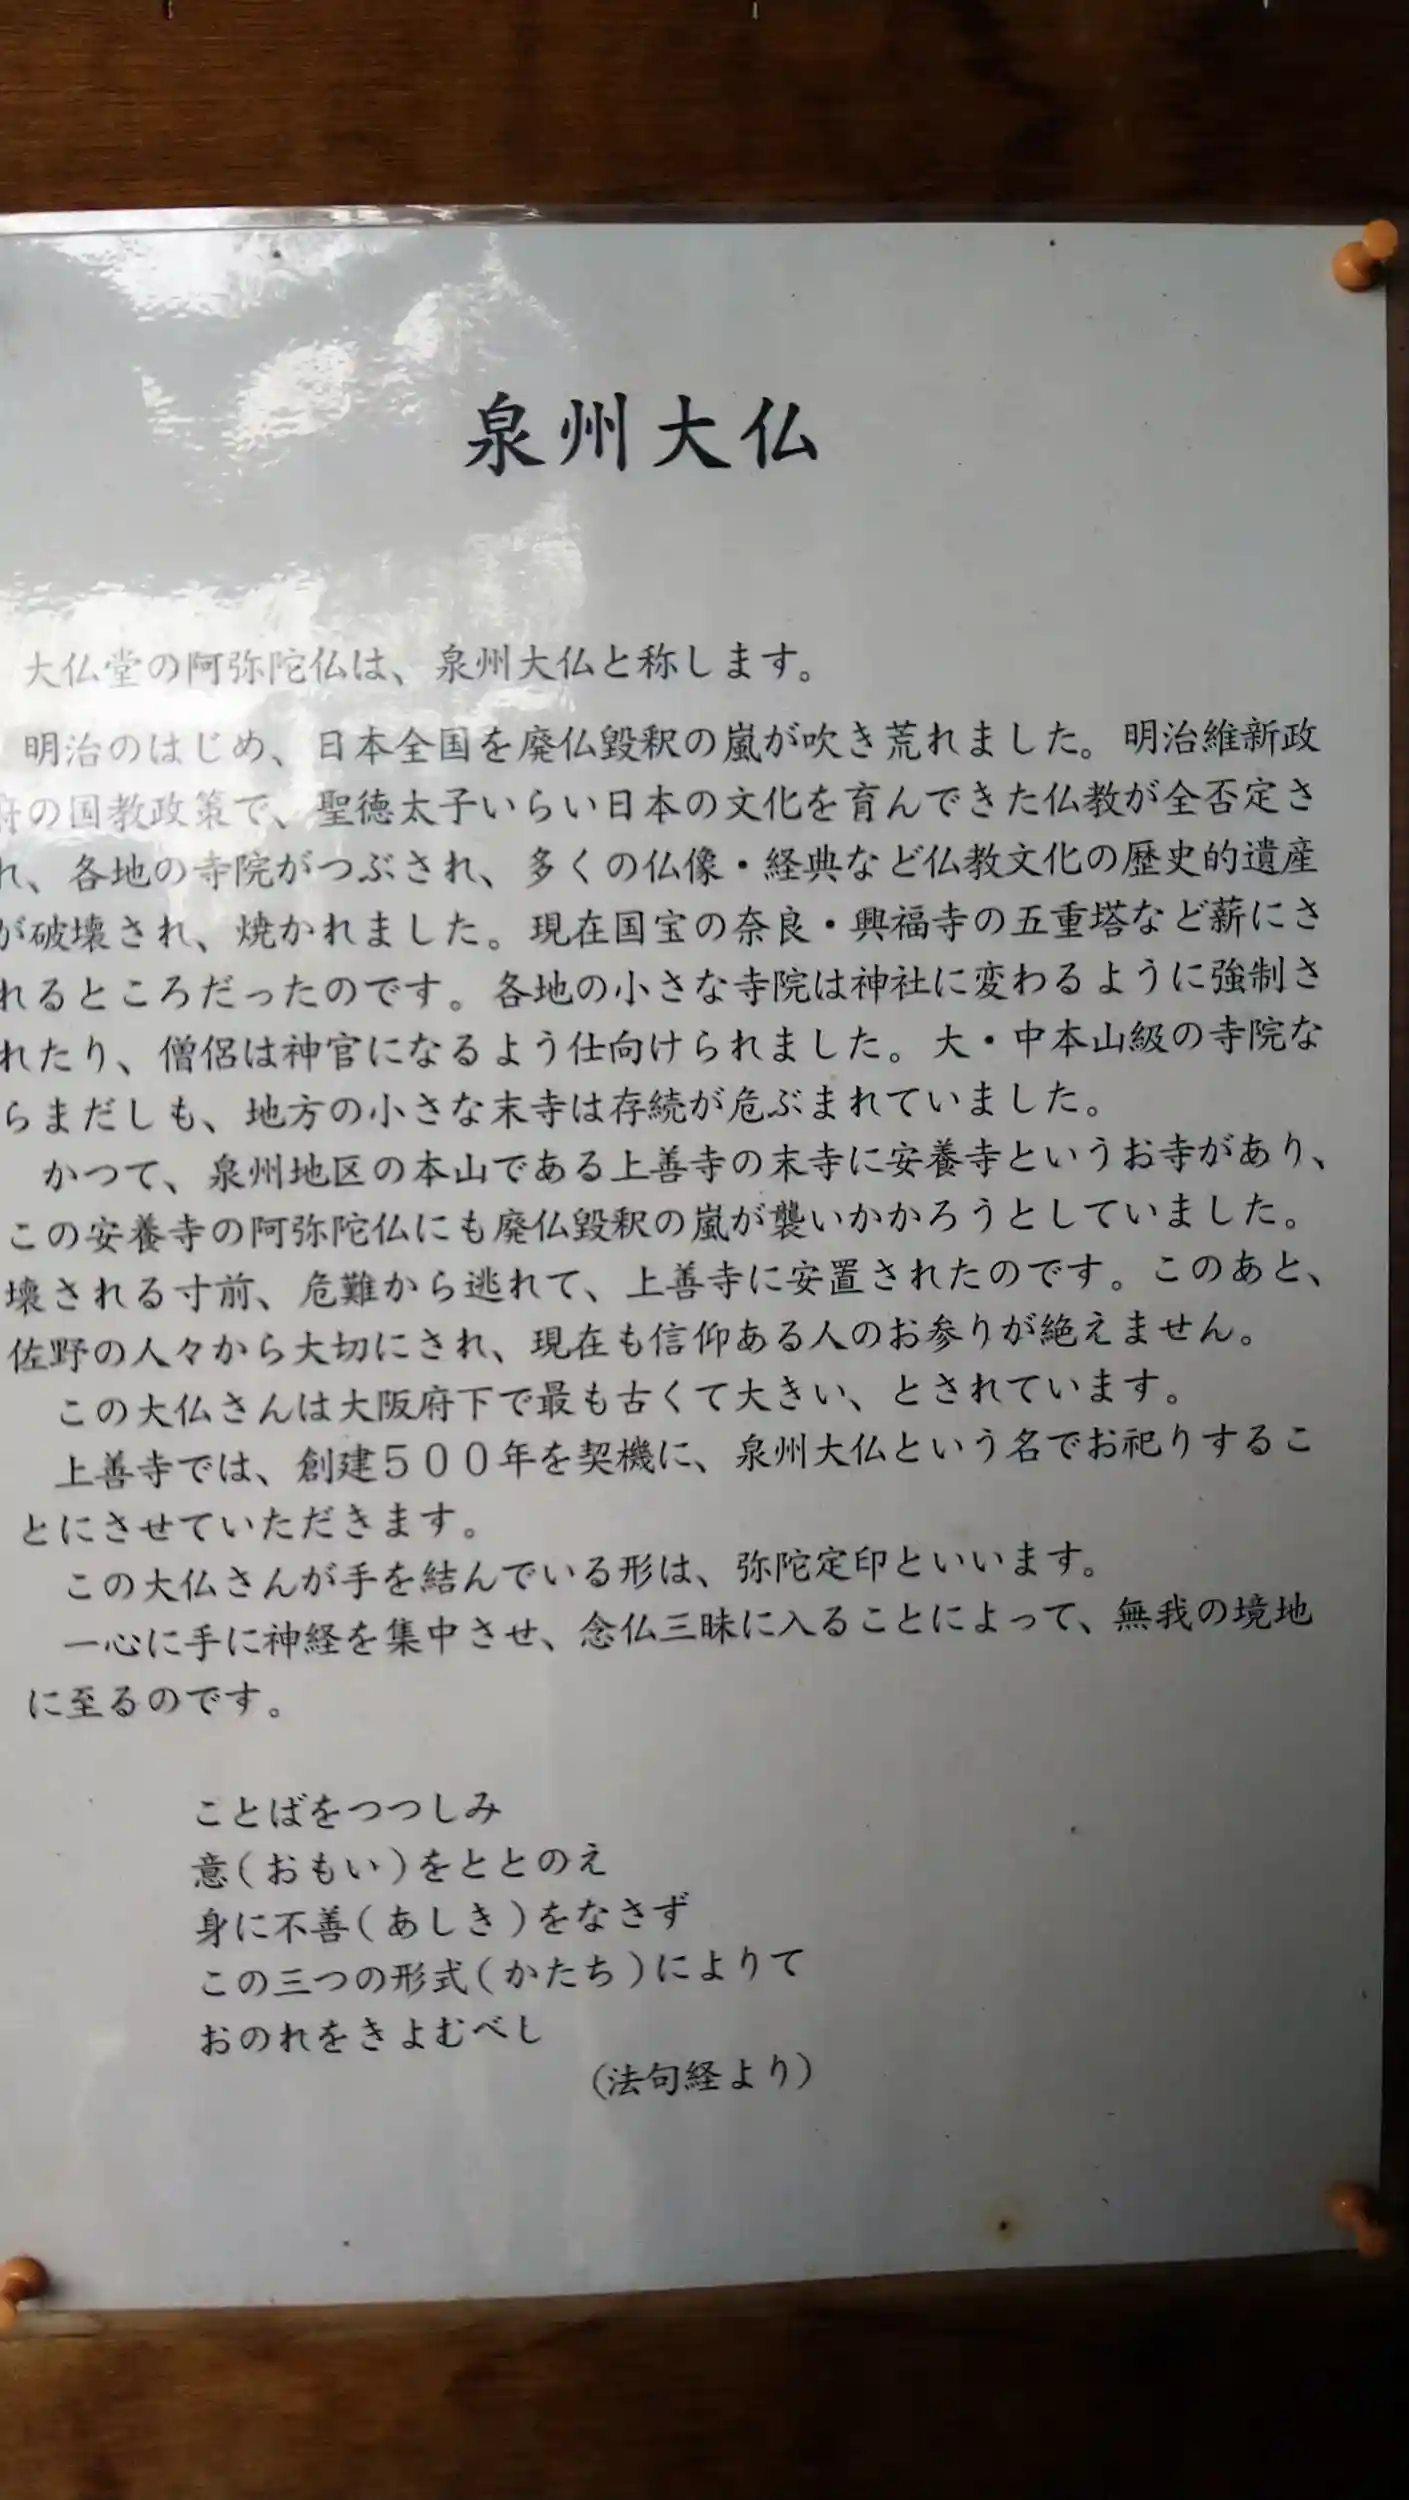 泉州大仏
大仏堂の阿弥陀仏は、泉州大仏と称します。
明治のはじめ、日本全国を廃仏毀釈の嵐が吹き荒れました。明治維新政
府の国教政策で、聖徳太子いらい日本の文化を育んできた仏教が全否定さ
れ、各地の寺院がつぶされ、多くの仏像・経典など仏教文化の歴史的遺産
が破壊され、焼かれました。現在国宝の奈良・興福寺の五重塔など薪にさ
れるところだったのです。各地の小さな寺院は神社に変わるように強制さ
れたり、僧侶は神官になるよう仕向けられました。大・中本山級の寺院な
らまだしも、地方の小さな末寺は存続が危ぶまれていました。
かつて、泉州地区の本山である上善寺の末寺に安養寺というお寺があり、
この安養寺の阿弥陀仏にも廃仏毀釈の嵐が襲いかかろうとしていました。
壊される寸前、危難から逃れて、上善寺に安置されたのです。このあと、
佐野の人々から大切にされ、現在も信仰ある人のお参りが絶えません。
この大仏さんは大阪府下で最も古くて大きい、とされています。
上善寺では、創建５００年を契機に、泉州大仏という名でお祀りするこ
とにさせていただきます。
この大仏さんが手を結んでいる形は、弥陀定印といいます。
一心に手に神経を集中させ、念仏三昧に入ることによって、無我の境地
に至るのです。
ことばをつつしみ
意（おもい）をととのえ
身に不善（あしき）をなさず
この三つの形式（かたち）によりて
おのれをきよむべし
（法句経より）